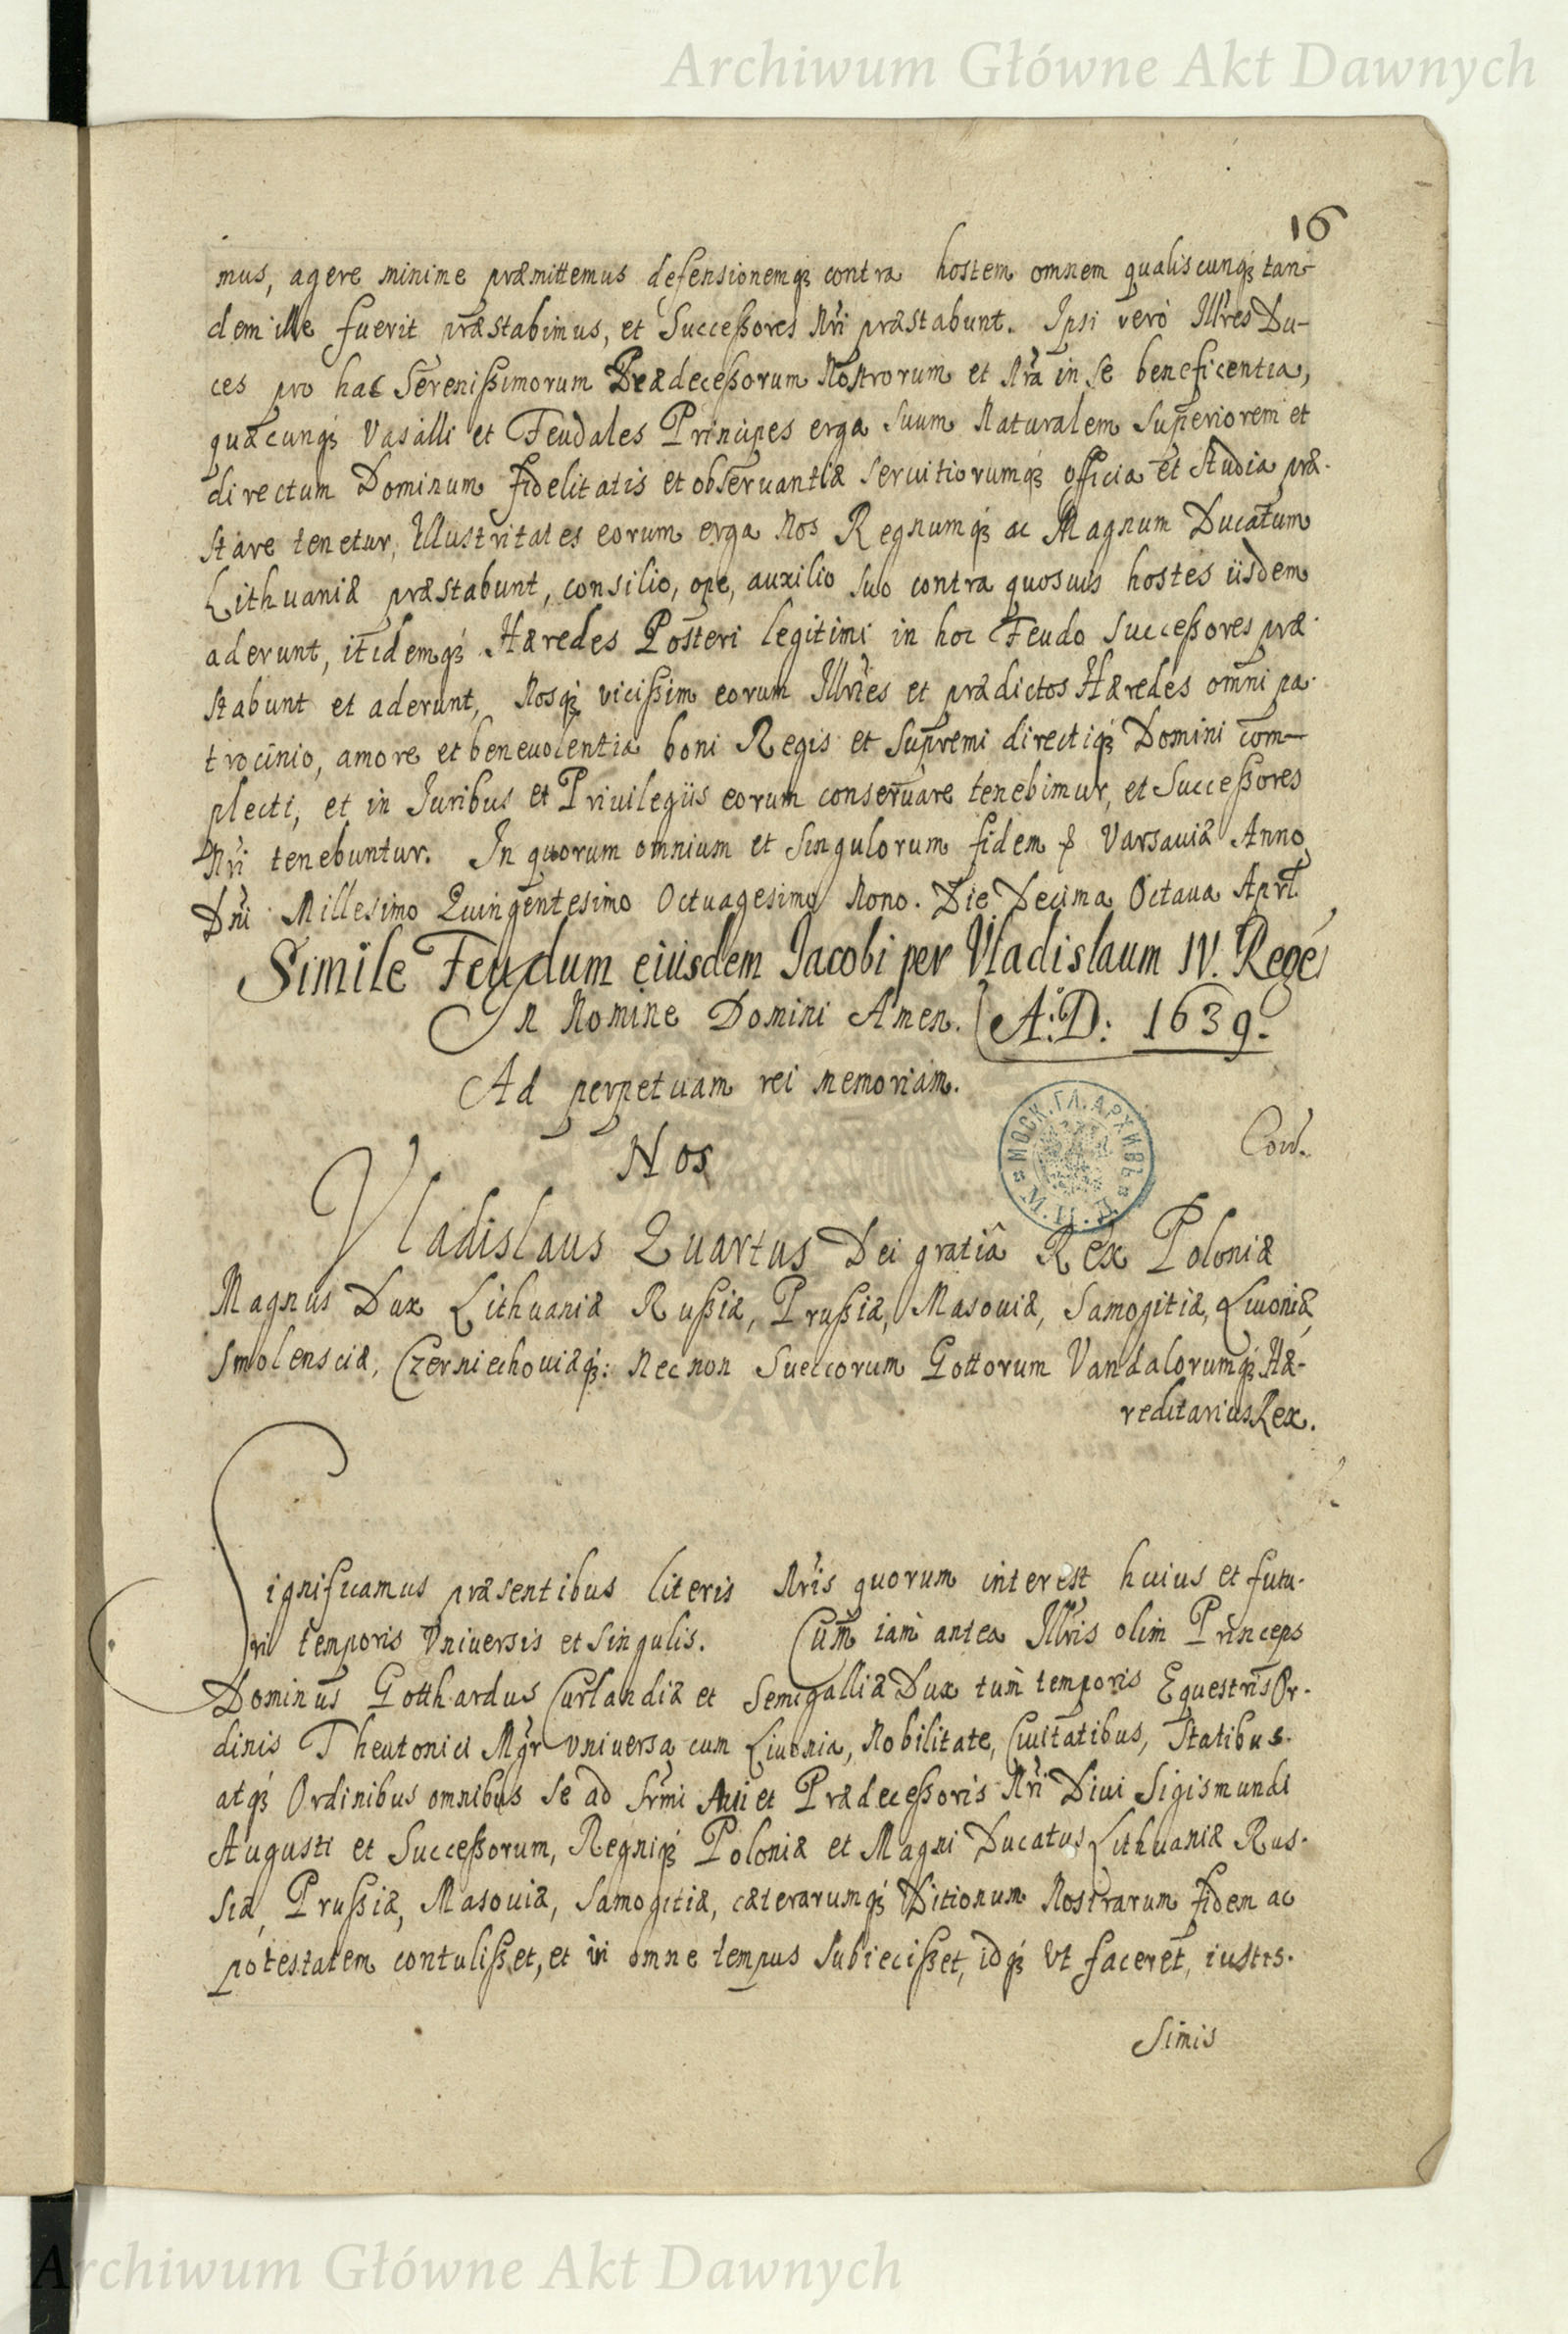 Archiwum Główne Akt Dawnych
16
mus, agere minime præmittemus defensionemq3 contra hostem omnem qualiscunq3 tan-
dem ille fuerit præstabimus, et Successores Nri præstabunt. Ipsi verò Illres Du-
ces pro hac Serenissimorum Prædecessorum Nostrorum et Nra in se beneficentia,
quæcunq3 Vasalli et Feudales Principes erga suum Naturalem Superiorem et
directum Dominum fidelitatis et obseruantiæ seruitiorumq3 officia et studia præ-
stare tenetur, Illustritates eorum erga Nos Regnumq3 ac Magnum Ducatum
Lithuaniæ præstabunt, consilio, ope, auxilio suo contra quosuis hostes iisdem
aderunt, itidemq3 Hæredes Posteri legitimi in hoc Feudo Successores præ-
stabunt et aderunt, Nosq3 vicissim eorum Illres et prædictos Hæredes omni pa-
trocinio, amore et beneuolentia boni Regis et Supremi directiq3 Domini com-
plecti, et in Iuribus et Priuilegiis eorum conseruare tenebimur, et Successores
Nri tenebuntur. In quorum omnium et singulorum fidem & Varsauiæ Anno
Dni Millesimo Quingentesimo Octuagesimo Nono. Die Decima Octaua Aprl
Simile Feudum eiusdem Jacobi per Vladislaum IV. Regē
In Nomine Domini Amen. A:D: 1639.
Ad perpetuam rei memoriam.
МОСК. ГЛ. АРХИВЪ
Nos
Vladislaus Quartus Dei gratiâ Rex Poloniæ
Magnus Dux Lithuaniæ Russiæ, Prussiæ, Masouiæ, Samogitiæ, Liuoniæ,
Smolensciæ, Czerniechouiæq3: Nec non Sueccorum Gottorum Vandalorumq3 Hæ-
reditarius Rex.
Significamus præsentibus literis Nris quorum interest huius et futu-
ri temporis Vniuersis et singulis. Cum iam antea Illris olim Princeps
Dominus Gotthardus Curlandiæ et Semigalliæ Dux tum temporis Equestris Or-
dinis Theutonici Mgr vniuersa cum Liuonia, Nobilitate, Ciuitatibus, Statibus.
atq3 Ordinibus omnibus se ad Srmi Aui et Prædecessoris Nri Diui Sigismundi
Augusti et Successorum, Regniq3 Poloniæ et Magni Ducatus Lithuaniæ Rus-
siæ, Prussiæ, Masouiæ, Samogitiæ, cæterarumq3 Ditionum Nostrarum fidem ac
potestatem contulisset, et in omne tempus subiecisset, idq3 vt faceret, iustis-
simis
Archiwum Główne Akt Dawnych